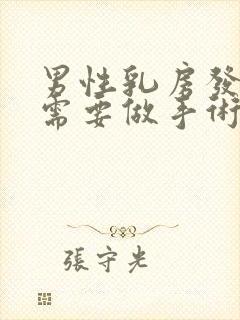 男性乳房發
需要做手術
張守光